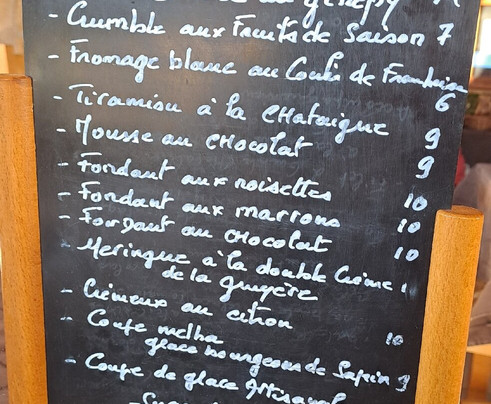 au génépy
- Crumble aux Fruits de Saison 7
- Fromage blanc au Coulis de Framboise
6
- Tiramisu à la CHataigne 9
- Mousse au CHocolat 9
- Fondant aux noisettes 10
- Fondant aux marrons 10
- Fondant au CHocolat 10
- Meringue à la double Crème 1
de la gruyère
- Crèmeux au citron
- Coupe melba 10
glace bourgeons de Sapin 9
- Coupe de glace Artisanal